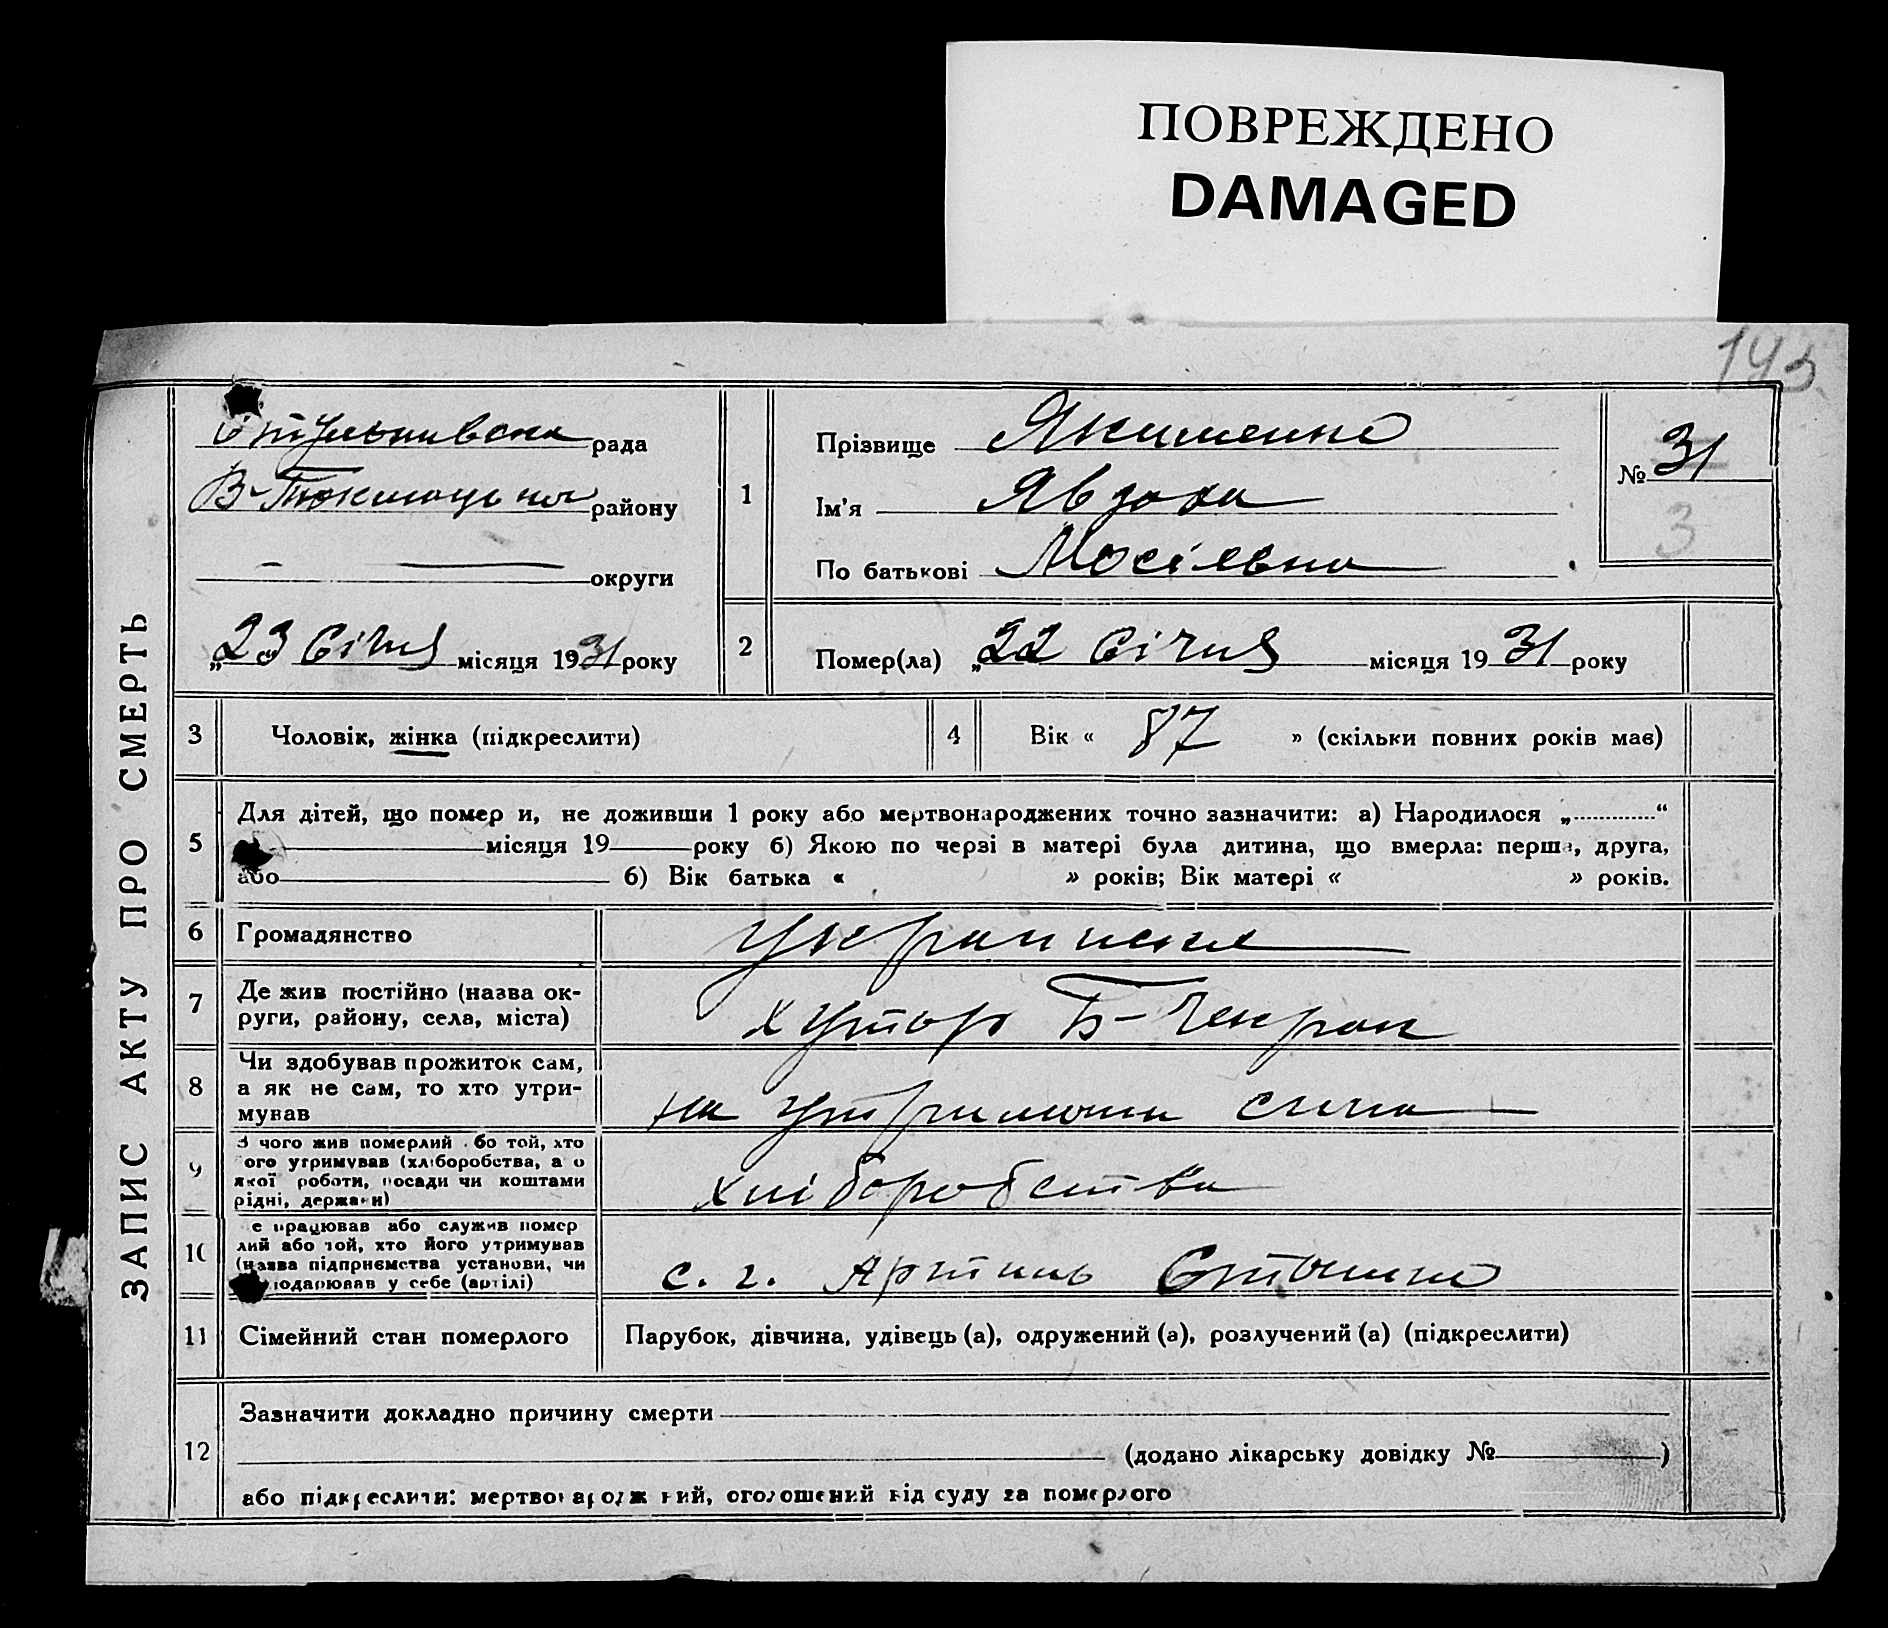 ПОВРЕЖДЕНО
DAMAGED
193
ЗАПИС АКТУ ПРО СМЕРТЬ
рада
В-Токмацького району
— — округи
„23 Січня місяця 1931 року
1
Прізвище Якименко
Ім'я Явдоха
По батькові Мосієвна
№ 31
3
2
Помер(ла) „22 Січня місяця 1931 року
3 Чоловік, жінка (підкреслити)
4 Вік « 87 » (скільки повних років має)
5
Для дітей, що помер и, не доживши 1 року або мертвонароджених точно зазначити: а) Народилося „ “
місяця 19 року б) Якою по черзі в матері була дитина, що вмерла: перша, друга,
або б) Вік батька « » років; Вік матері « » років.
6 Громадянство Украинська
7 Де жив постійно (назва ок-
руги, району, села, міста)
хутор Б-Чекрак
8 Чи здобував прожиток сам,
а як не сам, то хто утри-
мував
на утримани сина
9 З чого жив померлий бо той, хто
ого утримував (хліборобства, а о
якої роботи, посади чи коштами
рідні, держави)
хліборобства
10 е працював або служив помер
лий або той, хто його утримував
(назва підприємства установи, чи
подарював у себе (артілі)
с. г. Артиль
11 Сімейний стан померлого
Парубок, дівчина, удівець (а), одружений (а), розлучений (а) (підкреслити)
12
Зазначити докладно причину смерти
(додано лікарську довідку № )
або підкреслити: мертвонароджений, оголошений від суду за померлого